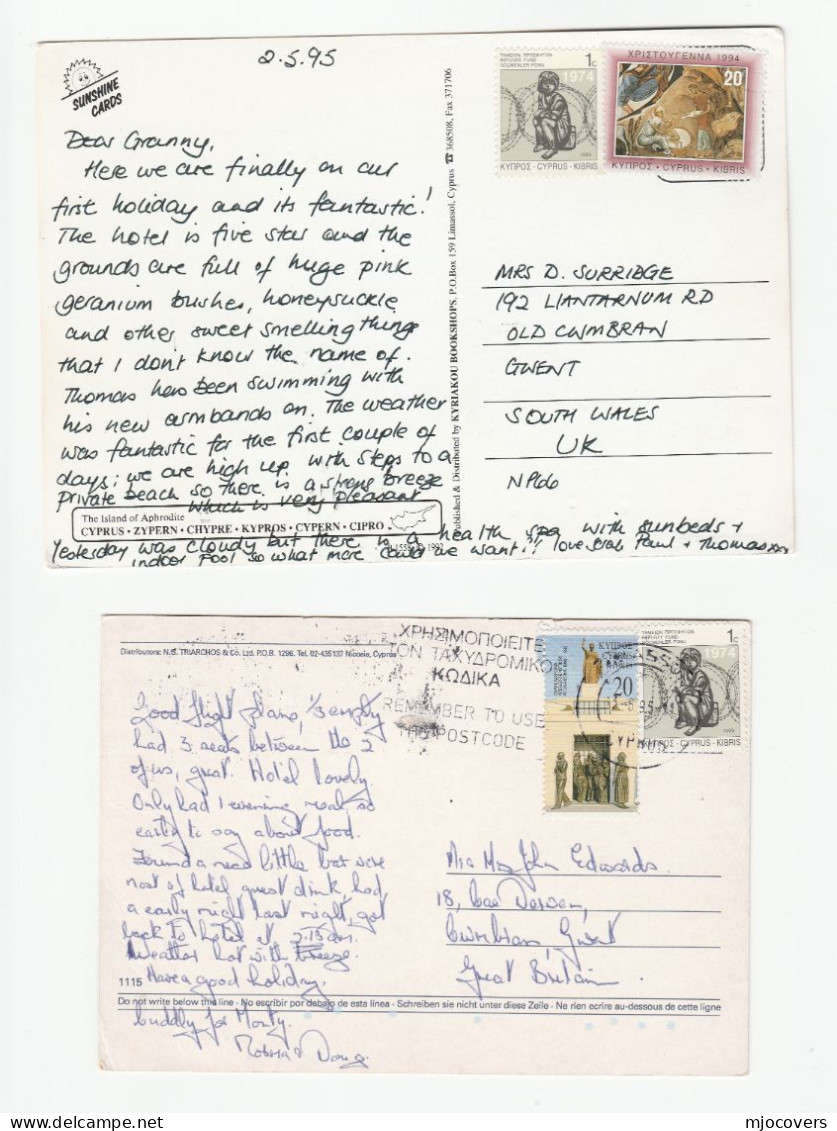 SUNSHINE
CARDS
2.5.95
Dear Granny,
Here we are finally on our
first holiday and its fantastic!
The hotel is five star and the
grounds are full of huge pink
geranium bushes, honeysuckle
and other sweet smelling things
that I don't know the name of.
Thomas has been swimming with
his new armbands on. The weather
was fantastic for the first couple of
days; we are high up, with steps to a
private beach so there is a strong breeze
which is very pleasant
The Island of Aphrodite
CYPRUS • ZYPERN • CHYPRE • KYPROS • CYPERN • CIPRO
Yesterday was cloudy but there is a health spa with sunbeds +
indoor pool so what more could we want!! love Paul + Thomas xxx
Published & Distributed by KYRIAKOU BOOKSHOPS, P.O.Box 159 Limassol, Cyprus ☎ 368508, Fax 371706
ΤΑΜΕΙΟΝ ΠΡΟΣΦΥΓΩΝ
REFUGEE FUND
GÖÇMENLER FONU
1c
1974
ΚΥΠΡΟΣ • CYPRUS • KIBRIS
ΧΡΙΣΤΟΥΓΕΝΝΑ 1994
20
ΚΥΠΡΟΣ • CYPRUS • KIBRIS
MRS D. SURRIDGE
192 LIANTARNUM RD
OLD CWMBRAN
GWENT
SOUTH WALES
UK
NP66
Distributors: N.G. TRIARCHOS & Co. Ltd. P.O.B. 1296. Tel. 02-435137 Nicosia, Cyprus
ΧΡΗΣΙΜΟΠΟΙΕΙΤΕ
ΤΟΝ ΤΑΧΥΔΡΟΜΙΚΟ
ΚΩΔΙΚΑ
REMEMBER TO USE
THE POSTCODE
ΚΥΠΡΟΣ
CYPRUS
20
1c
1974
ΚΥΠΡΟΣ • CYPRUS • KIBRIS
Good flight plane, 1/3 empty
had 3 seats between the 2
of us, great. Hotel lovely.
Only had 1 evening meal, so
early to say about food.
Found a nice little bar were
most of hotel guest drink, had
a early night last night, got
back to hotel at am.
Weather hot with breeze.
Have a good holiday.
1115
Do not write below this line - No escribir por debajo de esta linea - Schreiben sie nicht unter diese Zeile - Ne rien ecrire au-dessous de cette ligne
Cuddly for Monty.
Doug.
John Edwards.
18,
Cwmbran, Gwent
Great Britain
mjocovers